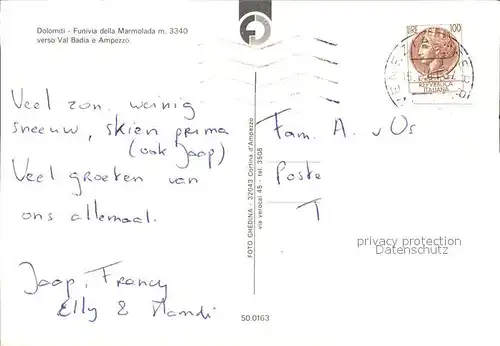 Dolomiti - Funivia della Marmolada m. 3340
verso Val Badia e Ampezzo
LIRE 100
REPUBBLICA
ITALIANA
VENEZIA
Veel zon, weinig
sneeuw, skien prima
(ook Jaap)
Veel groeten van
ons allemaal.
Jaap, Francy
Elly &
Fam. A. v Os
Poste
T
privacy protection
Datenschutz
FOTO GHEDINA - 32043 Cortina d'Ampezzo
via verocai 45 - tel. 3505
50.0163